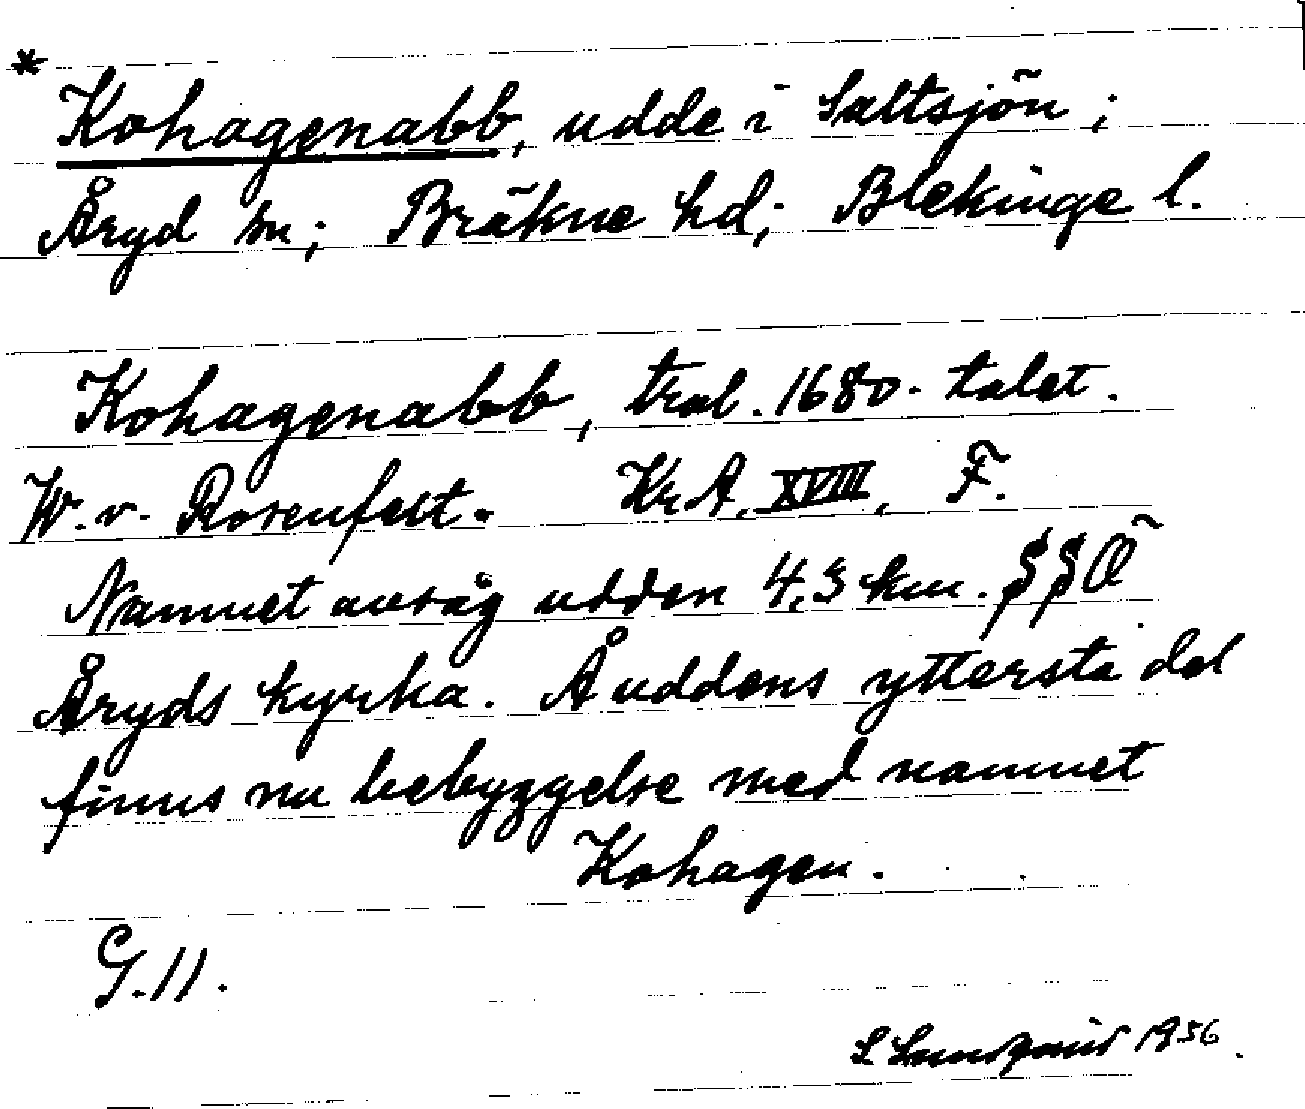 *
Kohagenabb, udde i Saltsjön;
Åryd sn; Bräkne hd; Blekinge l.
Kohagenabb, tral. 1680-talet.
W. v. Rosenfelt. Kr.A. XVIII, F.
Namnet avsåg udden 4,3 km. SSÖ
Åryds kyrka. Å uddens yttersta del
finns nu bebyggelse med namnet
Kohagen.
G. 11.
S Lundqvist 1956.